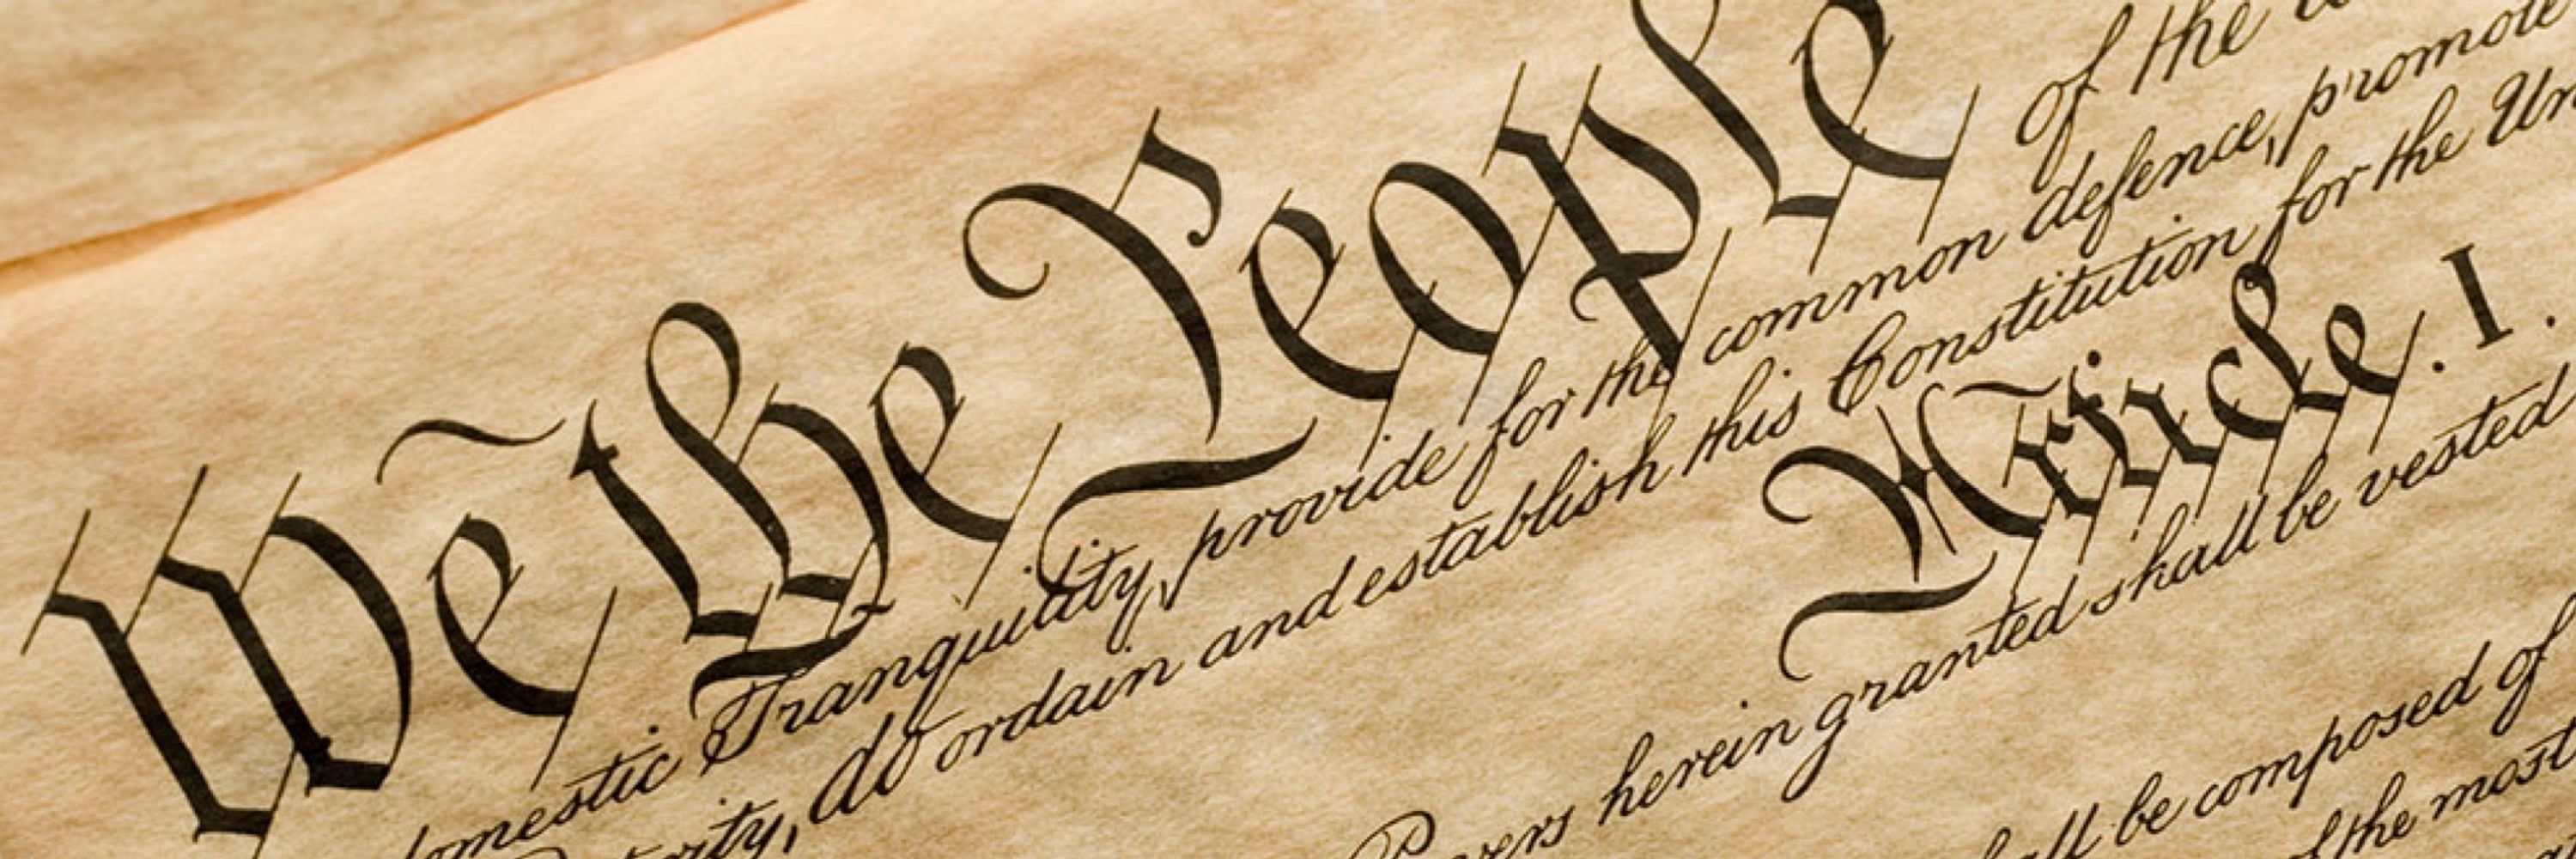 We the People of the
domestic Tranquility, provide for the common defence, promote
do ordain and establish this Constitution for the Un
Article. I.
herein granted shall be vested
be composed of
of the most